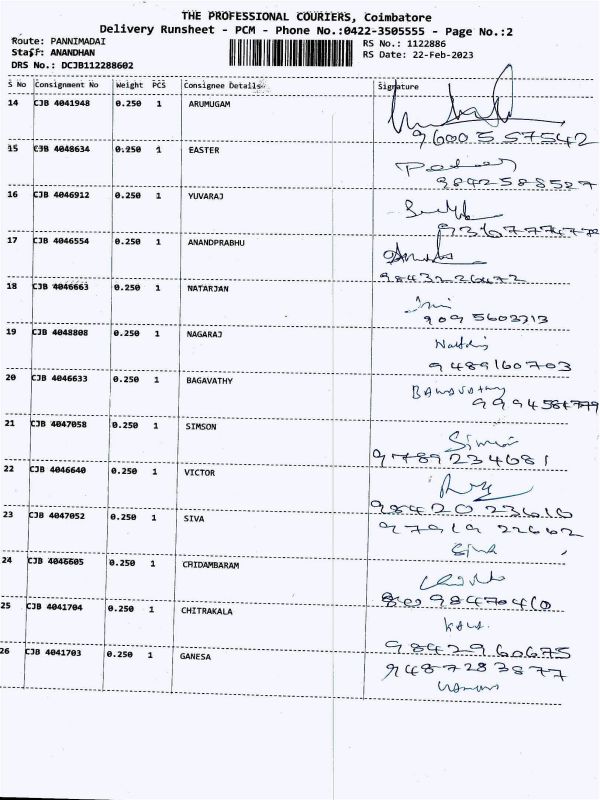 THE PROFESSIONAL COURIERS, Coimbatore
Delivery Runsheet - PCM - Phone No.:0422-3505555 - Page No.:2
Route: PANNIMADAI
Staff: ANANDHAN
DRS No.: DCJB112288602
RS No.: 1122886
RS Date: 22-Feb-2023
S No Consignment No Weight PCS Consignee Details Signature
14 CJB 4041948 0.250 1 ARUMUGAM
9600557542
15 CJB 4048634 0.250 1 EASTER
9842588527
16 CJB 4046912 0.250 1 YUVARAJ
17 CJB 4046554 0.250 1 ANANDPRABHU
18 CJB 4046663 0.250 1 NATARJAN
9095603213
19 CJB 4048808 0.250 1 NAGARAJ
9489160703
20 CJB 4046633 0.250 1 BAGAVATHY
21 CJB 4047058 0.250 1 SIMSON
9789234681
22 CJB 4046640 0.250 1 VICTOR
23 CJB 4047052 0.250 1 SIVA
24 CJB 4046605 0.250 1 CHIDAMBARAM
25 CJB 4041704 0.250 1 CHITRAKALA
9842960675
26 CJB 4041703 0.250 1 GANESA
9487283877